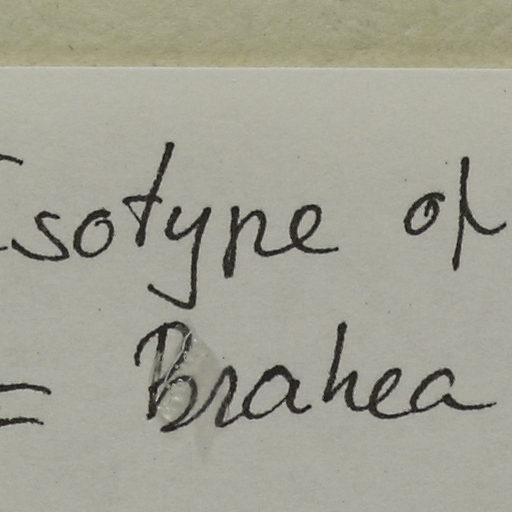 Isotype of
= Brahea